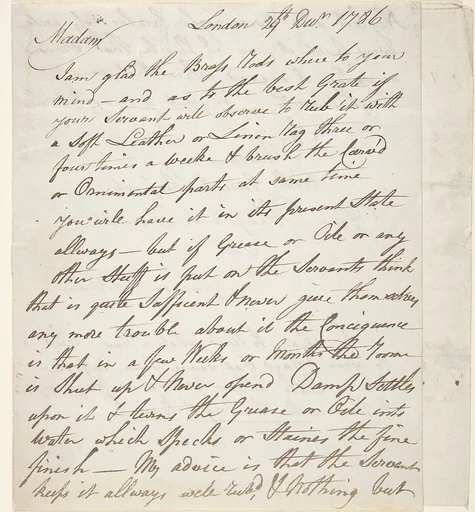 London 29th Decr. 1786
Madam
I am glad the Brass Rods where to your
mind - and as to the best Grate if
yours Servant will observe to rub it with
a soft Leather or Linen Rag three or
four times a weeke & brush the Carved
or Ornimental parts at same time
you will have it in its present State
allways - but if Grease or Oile or any
other Stuff is put on the Servants think
that is quite Safficent & never give them selves
any more trouble about it the Conciquence
is that in a few Weeks or Months the Roome
is Shut up & Never opend Damp Settles
upon it & turns the Grease or Oile into
Water which Specks or Staines the fine
finesh - My advice is that the Servant
keeps it allways well rubd. & Nothing but